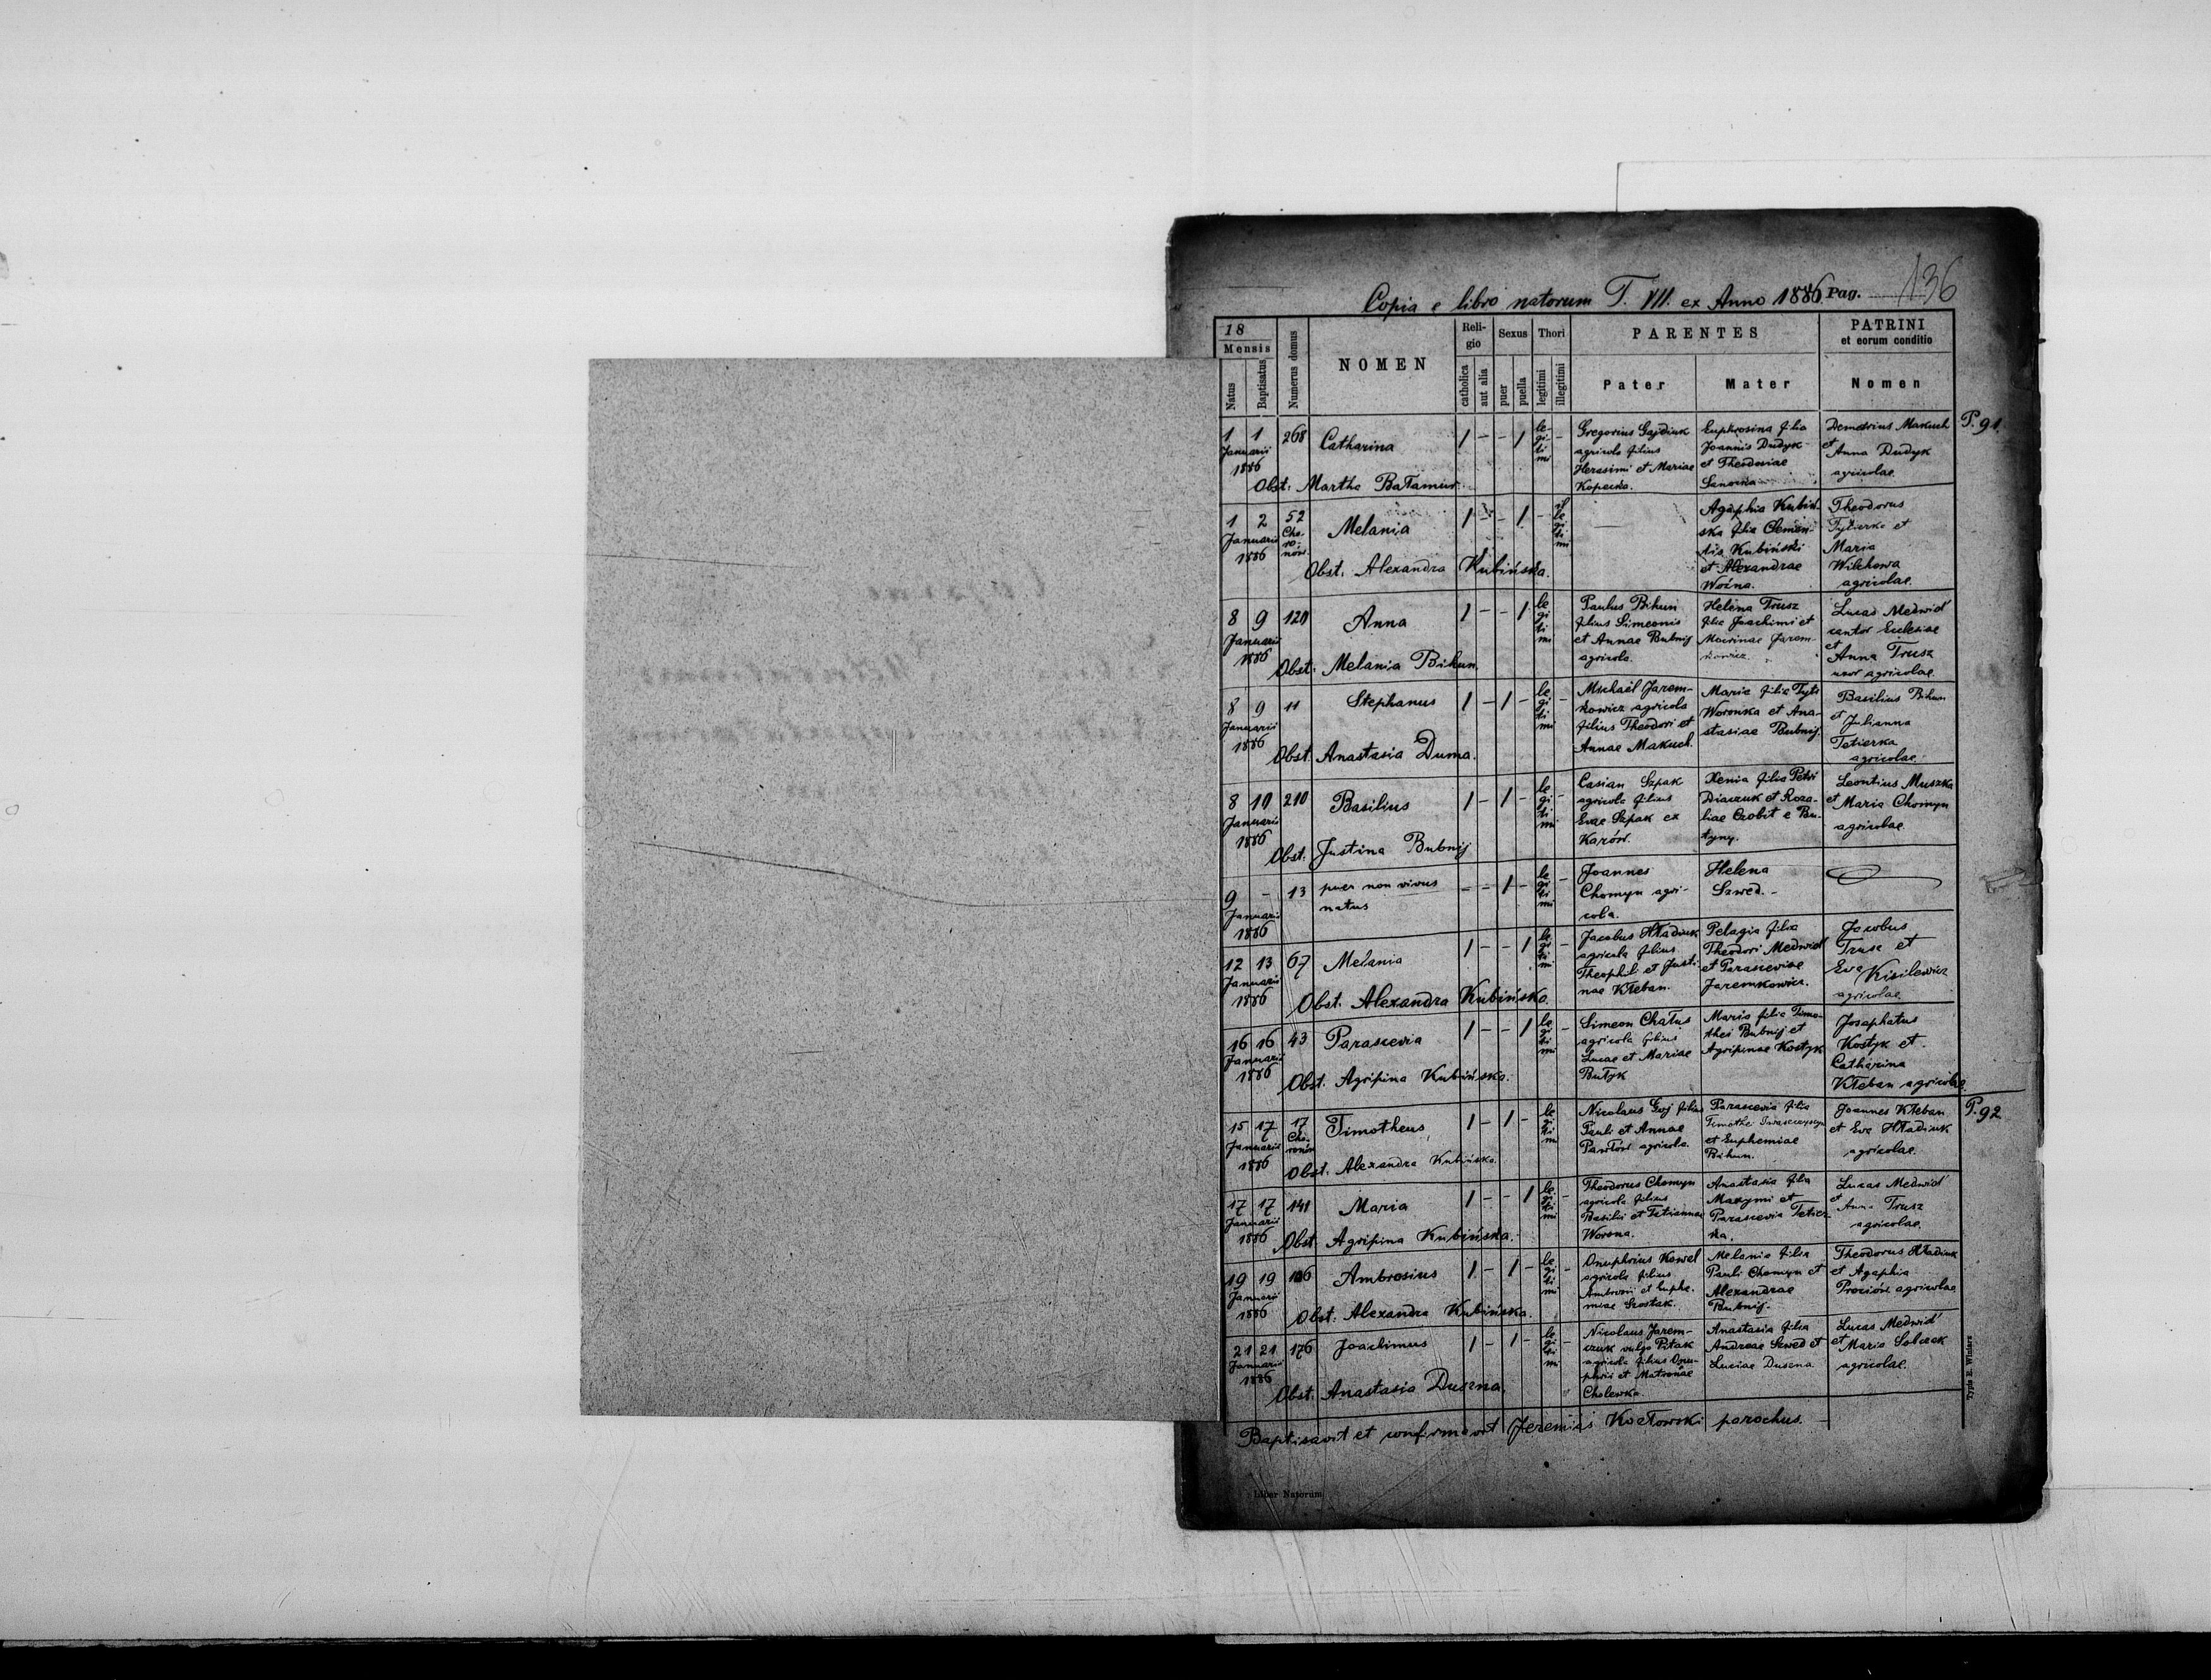 Copia e libro natorum T. VII. ex Anno 1886. Pag. 136
18
Mensis
Natus
Baptisatus
Numerus domus
NOMEN
Religio
catholica
aut alia
Sexus
puer
puella
Thori
legitimi
illegitimi
PARENTES
Pater
Mater
PATRINI
et eorum conditio
Nomen
P. 91.
1 1 268 Catharina 1 - - 1 legitimi -
Januarii
1886
Obst: Martha Bałamut.
Gregorius Gajdiuk
agricola filius
Herasimi et Mariae
Kopecka.
Euphrosina filia
Joannis Dudyk
et Theodosiae
Sanocka
Demetrius Makuch
et
Anna Dudyk
agricolae.
1 2 52 Melania 1 - - 1 - illegitimi
Choronów.
Januarii
1886
Obst. Alexandra Kubińska.
Agaphia Kubińska
filia Clementis
Kubiński
et Alexandrae
Woźna.
Theodorus
Tytierka et
Maria
Wilchowa
agricolae.
8 9 120 Anna 1 - - 1 legitimi
Januarii
1886
Obst: Melania Bihun.
Paulus Bihun
filius Simeonis
et Annae Bubnij
agricola.
Helena Trusz
filia Joachimi et
Mocrinae Jaremkowicz.
Lucas Medwid
cantor Eclesiae
et
Anna Trusz
uxor agricolae.
8 9 11 Stephanus 1 - 1 - legitimi -
Januarii
1886
Obst. Anastasia Duma.
Michael Jaremkowicz
agricola
filius Theodori et
Annae Makuch.
Maria filia Tyti
Woronka et Anastasiae
Bubnij.
Basilius Bihun
et Julianna
Tetierka
agricolae.
8 10 210 Basilius 1 - 1 - legitimi -
Januarii
1886
Obst. Justina Bubnij
Casian Szpak
agricola filius
Evae Szpak ex
Karów.
Xenia filia Petri
Diaczuk et Rozaliae
Czobit e Butyny.
Leontius Muszka
et Maria Chomyn
agricolae.
9 - 13 puer non vivus - - 1 - legitimi -
natus
Januarii
1886
Joannes
Chomyn agricola.
Helena
Szwed. -
12 13 67 Melania 1 - - 1 legitimi -
Januarii
1886
Obst. Alexandra Kubińska.
Jacobus Hładiuk
agricola filius
Theophil et Justinae
Kłeban.
Pelagia filia
Theodori Medwid
et Parasceviae
Jaremkowicz.
Jacobus
Trusz et
Eva Kisilewicz
agricolae.
16 16 43 Parascevia 1 - - 1 legitimi -
Januarii
1886
Obst. Agripina Kubińska.
Simeon Chałus
agricola filius
Lucae et Mariae
Butyk
Maria filia Timothei
Bubnij et
Agripinae Kostyk
Josaphatus
Kostyk et
Catharina
Kłeban agricolae.
P. 92
15 17 17 Timotheus 1 - 1 - legitimi
Choronów
Januarii
1886
Obst. Alexandra Kubińska.
Nicolaus Guj filius
Pauli et Annae
Pawłów agricola.
Parascevia filia
Timothei
et Euphemiae
Bihun.
Joannes Kłeban
et Eva Hładiuk
agricolae.
17 17 141 Maria 1 - - 1 legitimi -
Januarii
1886
Obst. Agripina Kubińska.
Theodorus Chomyn
agricola filius
Basilii et Tetiannae
Worona.
Anastasia filia
Maxymi et
Parascevia Tetierka.
Lucas Medwid
et
Anna Trusz
agricolae.
19 19 106 Ambrosius 1 - 1 - legitimi -
Januarii
1886
Obst: Alexandra Kubińska.
Onuphrius Kowel
agricola filius
Ambrosii et Euphemiae
Szostak.
Melania filia
Pauli Chomyn et
Alexandrae
Bubnij.
Theodorus Hładiuk
et Agaphia
Prociów agricolae
21 21 176 Joachimus 1 - 1 - legitimi -
Januarii
1886
Obst. Anastasia Duszna.
Nicolaus Jaremczuk
vulgo Pitak
agricola filius Onuphrii
et Matronae
Cholewka.
Anastasia filia
Andreae Szwed et
Luciae Duszna
Lucas Medwid
et Maria Sobczak
agricolae.
Baptisavit et confirmavit Jeremias Kozłowski parochus. -
Liber Natorum
Typis E. Winiarz